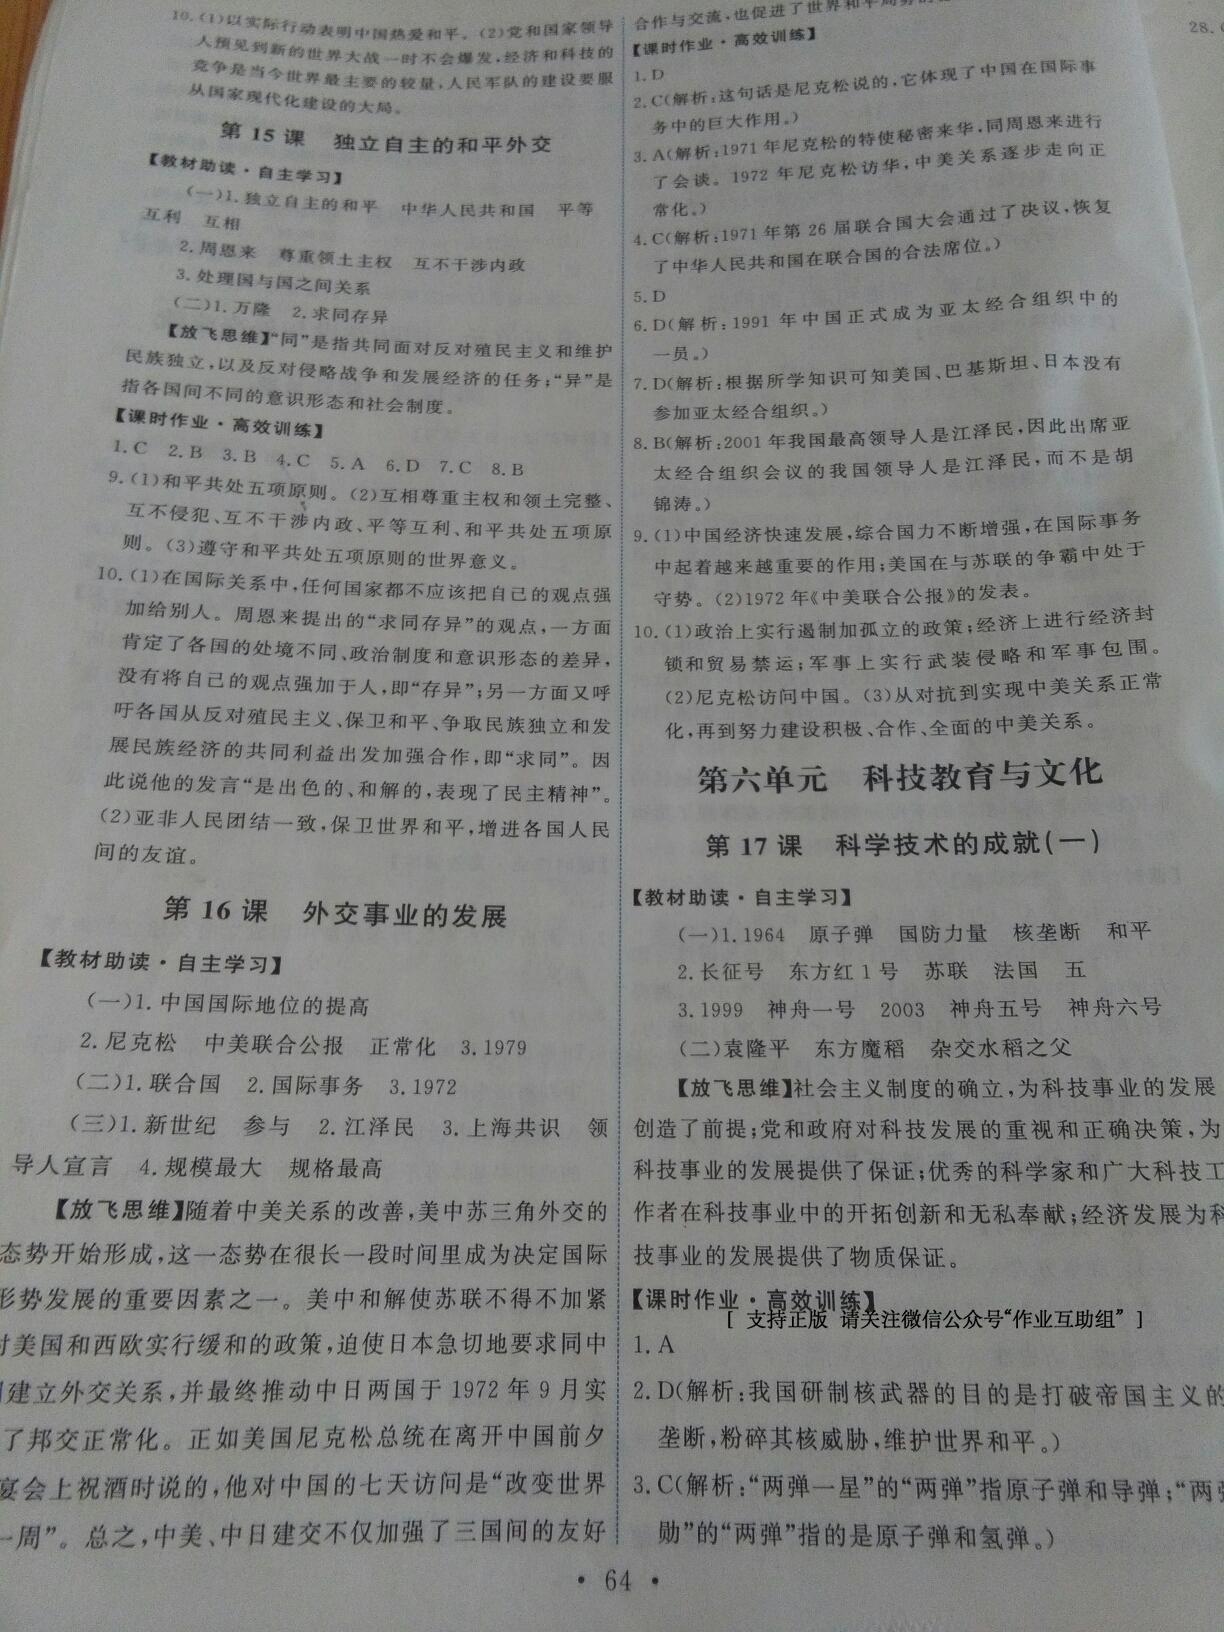 10.(1)以实际行动表明中国热爱和平。(2)党和国家领导
人预见到新的世界大战一时不会爆发,经济和科技的
竞争是当今世界最主要的较量,人民军队的建设要服
从国家现代化建设的大局。
第 15 课 独立自主的和平外交
【教材助读·自主学习】
(一)1.独立自主的和平 中华人民共和国 平等
互利 互相
2.周恩来 尊重领土主权 互不干涉内政
3.处理国与国之间关系
(二)1.万隆 2.求同存异
【放飞思维】“同”是指共同面对反对殖民主义和维护
民族独立,以及反对侵略战争和发展经济的任务;“异”是
指各国间不同的意识形态和社会制度。
【课时作业·高效训练】
1.C 2.B 3.B 4.C 5.A 6.D 7.C 8.B
9.(1)和平共处五项原则。(2)互相尊重主权和领土完整、
互不侵犯、互不干涉内政、平等互利、和平共处五项原
则。(3)遵守和平共处五项原则的世界意义。
10.(1)在国际关系中,任何国家都不应该把自己的观点强
加给别人。周恩来提出的“求同存异”的观点,一方面
肯定了各国的处境不同、政治制度和意识形态的差异,
没有将自己的观点强加于人,即“存异”;另一方面又呼
吁各国从反对殖民主义、保卫和平、争取民族独立和发
展民族经济的共同利益出发加强合作,即“求同”。因
此说他的发言“是出色的、和解的,表现了民主精神”。
(2)亚非人民团结一致,保卫世界和平,增进各国人民
间的友谊。
第 16 课 外交事业的发展
【教材助读·自主学习】
(一)1.中国国际地位的提高
2.尼克松 中美联合公报 正常化 3.1979
(二)1.联合国 2.国际事务 3.1972
(三)1.新世纪 参与 2.江泽民 3.上海共识 领
导人宣言 4.规模最大 规格最高
【放飞思维】随着中美关系的改善,美中苏三角外交的
态势开始形成,这一态势在很长一段时间里成为决定国际
形势发展的重要因素之一。美中和解使苏联不得不加紧
对美国和西欧实行缓和的政策,迫使日本急切地要求同中
建立外交关系,并最终推动中日两国于 1972 年 9 月实
了邦交正常化。正如美国尼克松总统在离开中国前夕
宴会上祝酒时说的,他对中国的七天访问是“改变世界
一周”。总之,中美、中日建交不仅加强了三国间的友好
合作与交流,也促进了世界和平局势的
【课时作业·高效训练】
1.D
2.C(解析:这句话是尼克松说的,它体现了中国在国际事
务中的巨大作用。)
3.A(解析:1971年尼克松的特使秘密来华,同周恩来进行
了会谈。1972 年尼克松访华,中美关系逐步走向正
常化。)
4.C(解析:1971年第 26 届联合国大会通过了决议,恢复
了中华人民共和国在联合国的合法席位。)
5.D
6.D(解析:1991 年中国正式成为亚太经合组织中的
一员。)
7.D(解析:根据所学知识可知美国、巴基斯坦、日本没有
参加亚太经合组织。)
8.B(解析:2001年我国最高领导人是江泽民,因此出席亚
太经合组织会议的我国领导人是江泽民,而不是胡
锦涛。)
9.(1)中国经济快速发展,综合国力不断增强,在国际事务
中起着越来越重要的作用;美国在与苏联的争霸中处于
守势。(2)1972年《中美联合公报》的发表。
10.(1)政治上实行遏制加孤立的政策;经济上进行经济封
锁和贸易禁运;军事上实行武装侵略和军事包围。
(2)尼克松访问中国。(3)从对抗到实现中美关系正常
化,再到努力建设积极、合作、全面的中美关系。
第六单元 科技教育与文化
第 17 课 科学技术的成就(一)
【教材助读·自主学习】
(一)1.1964 原子弹 国防力量 核垄断 和平
2.长征号 东方红1号 苏联 法国 五
3.1999 神舟一号 2003 神舟五号 神舟六号
(二)袁隆平 东方魔稻 杂交水稻之父
【放飞思维】社会主义制度的确立,为科技事业的发展
创造了前提;党和政府对科技发展的重视和正确决策,为
科技事业的发展提供了保证;优秀的科学家和广大科技工
作者在科技事业中的开拓创新和无私奉献;经济发展为科
技事业的发展提供了物质保证。
【课时作业·高效训练】
[ 支持正版 请关注微信公众号“作业互助组” ]
1.A
2.D(解析:我国研制核武器的目的是打破帝国主义的
垄断,粉碎其核威胁,维护世界和平。)
3.C(解析:“两弹一星”的“两弹”指原子弹和导弹;“两弹
勋”的“两弹”指的是原子弹和氢弹。)
· 64 ·
28.